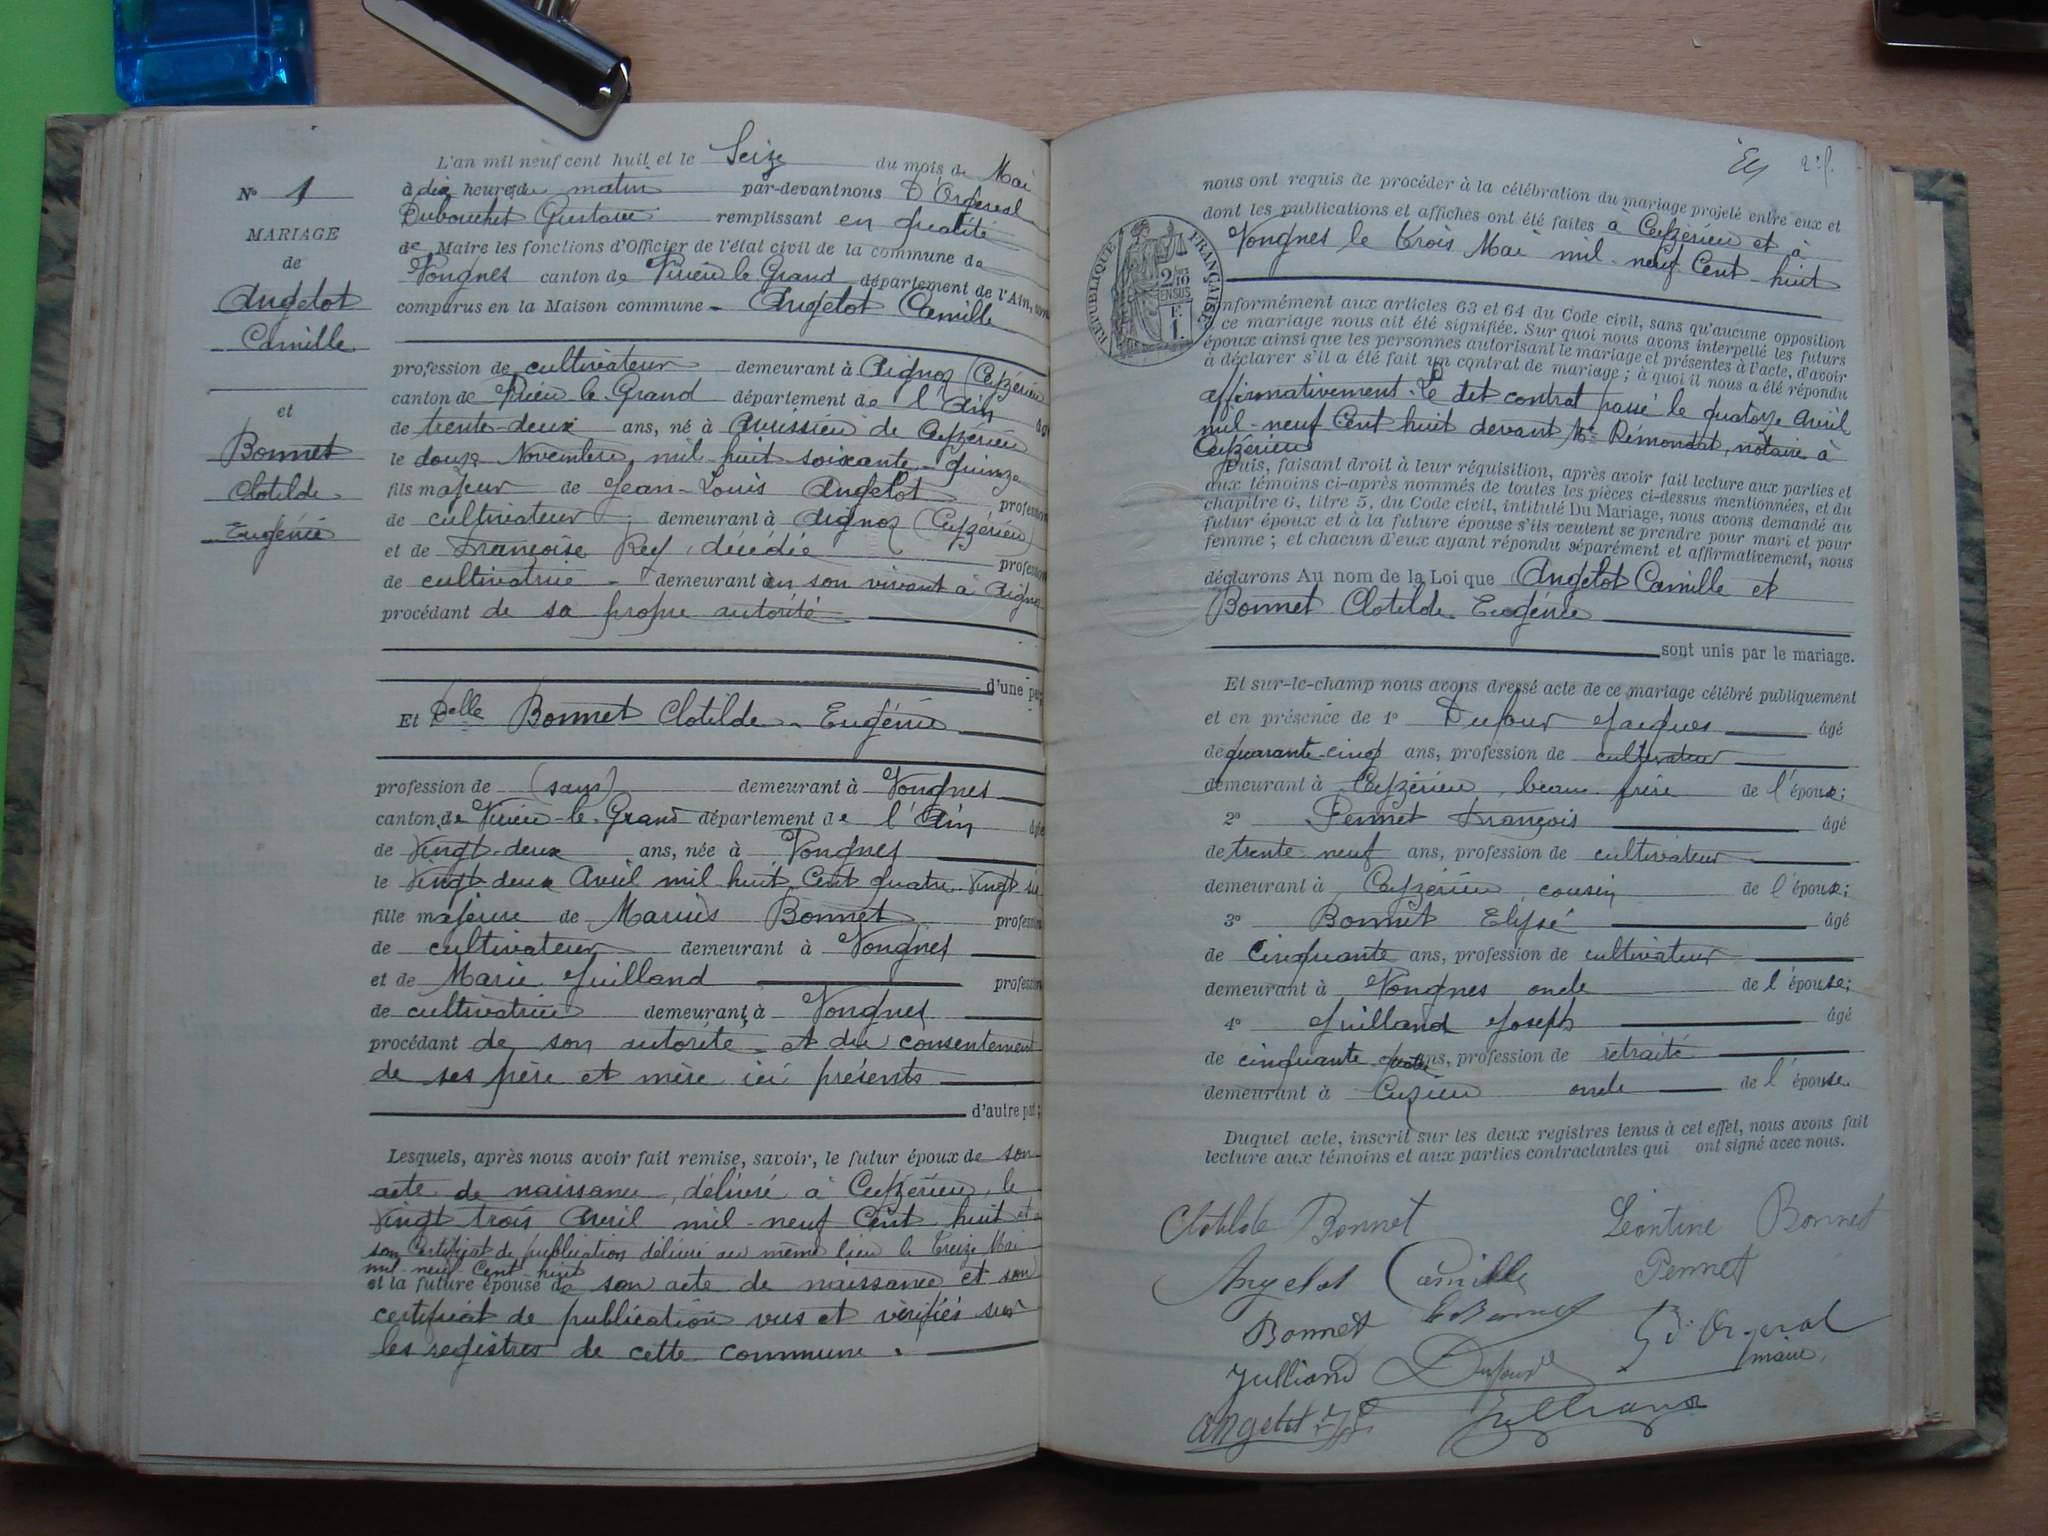 N° 1
MARIAGE
de
Angelot
Camille
et
Bonnet
Clotilde
Eugénie
L'an mil neuf cent huit et le Seize du mois de Mai
à dix heures du matin par-devant nous D'Orgeval
Dubouchet Gustave remplissant en qualité
de Maire les fonctions d'Officier de l'état civil de la commune de
Vongnes canton de Virieu le Grand département de l'Ain, sont
comparus en la Maison commune Angelot Camille
profession de cultivateur demeurant à Aignoz (Ceyzérieu
canton de Virieu le Grand département de l'Ain âgé
de trente-deux ans, né à Avrissieu de Ceyzérieu
le douze Novembre mil huit soixante-quinze
fils majeur de Jean-Louis Angelot profession
de cultivateur demeurant à Aignoz (Ceyzérieu)
et de Françoise Rey, décédée profession
de cultivatrice demeurant en son vivant à Aignoz
procédant de sa propre autorité
d'une part;
Et Delle Bonnet Clotilde-Eugénie
profession de (sans) demeurant à Vongnes
canton de Virieu-le-Grand département de l'Ain âgée
de vingt-deux ans, née à Vongnes
le vingt-deux Avril mil huit Cent quatre vingt six
fille majeure de Marius Bonnet profession
de cultivateur demeurant à Vongnes
et de Marie Juilland profession
de cultivatrice demeurant à Vongnes
procédant de son autorité et du consentement
de ses père et mère ici présents
d'autre part;
Lesquels, après nous avoir fait remise, savoir, le futur époux de son
acte de naissance, délivré à Ceyzérieu, le
vingt trois Avril mil-neuf Cent huit et
son Certificat de publication délivré au même lieu le treize Mai
mil-neuf Cent huit
et la future épouse de son acte de naissance et son
certificat de publication vus et vérifiés sur
les registres de cette commune.
nous ont requis de procéder à la célébration du mariage projeté entre eux et
dont les publications et affiches ont été faites à Ceyzérieu et à
Vongnes le trois Mai mil-neuf Cent huit
RÉPUBLIQUE FRANÇAISE
conformément aux articles 63 et 64 du Code civil, sans qu'aucune opposition
à ce mariage nous ait été signifiée. Sur quoi nous avons interpellé les futurs
époux ainsi que les personnes autorisant le mariage et présentes à l'acte, d'avoir
à déclarer s'il a été fait un contrat de mariage; à quoi il nous a été répondu
affirmativement. Le dit contrat passé le quatorze Avril
mil-neuf Cent huit devant Me Rémondat, notaire à
Ceyzérieu
Puis, faisant droit à leur réquisition, après avoir fait lecture aux parties et
aux témoins ci-après nommés de toutes les pièces ci-dessus mentionnées, et du
chapitre 6, titre 5, du Code civil, intitulé Du Mariage, nous avons demandé au
futur époux et à la future épouse s'ils veulent se prendre pour mari et pour
femme; et chacun d'eux ayant répondu séparément et affirmativement, nous
déclarons Au nom de la Loi que Angelot Camille et
Bonnet Clotilde Eugénie
sont unis par le mariage.
Et sur-le-champ nous avons dressé acte de ce mariage célébré publiquement
et en présence de 1° Dufour Jacques âgé
de quarante-cinq ans, profession de cultivateur
demeurant à Ceyzérieu, beau frère de l'épouse;
2° Pennet François âgé
de trente neuf ans, profession de cultivateur
demeurant à Ceyzérieu cousin de l'épouse;
3° Bonnet Elysé âgé
de cinquante ans, profession de cultivateur
demeurant à Vongnes oncle de l'épouse;
4° Juilland Joseph âgé
de cinquante quatre ans, profession de retraité
demeurant à Cuzieu oncle de l'épouse.
Duquel acte, inscrit sur les deux registres tenus à cet effet, nous avons fait
lecture aux témoins et aux parties contractantes qui ont signé avec nous.
Clotilde Bonnet Léontine Bonnet
Angelot Camille Pennet
Bonnet
G d'Orgeval
maire
Julliand Dufour
Angelot Julliand